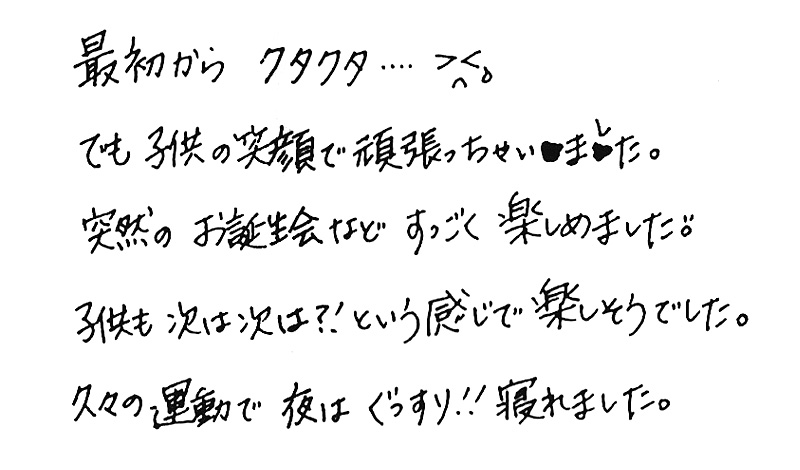 最初から クタクタ‥‥ >ㅅ<。
でも 子供の笑顔で頑張っちゃいました。
突然の お誕生会など すっごく 楽しめました。
子供も 次は次は?!という感じで 楽しそうでした。
久々の運動で 夜は ぐっすり!!寝れました。